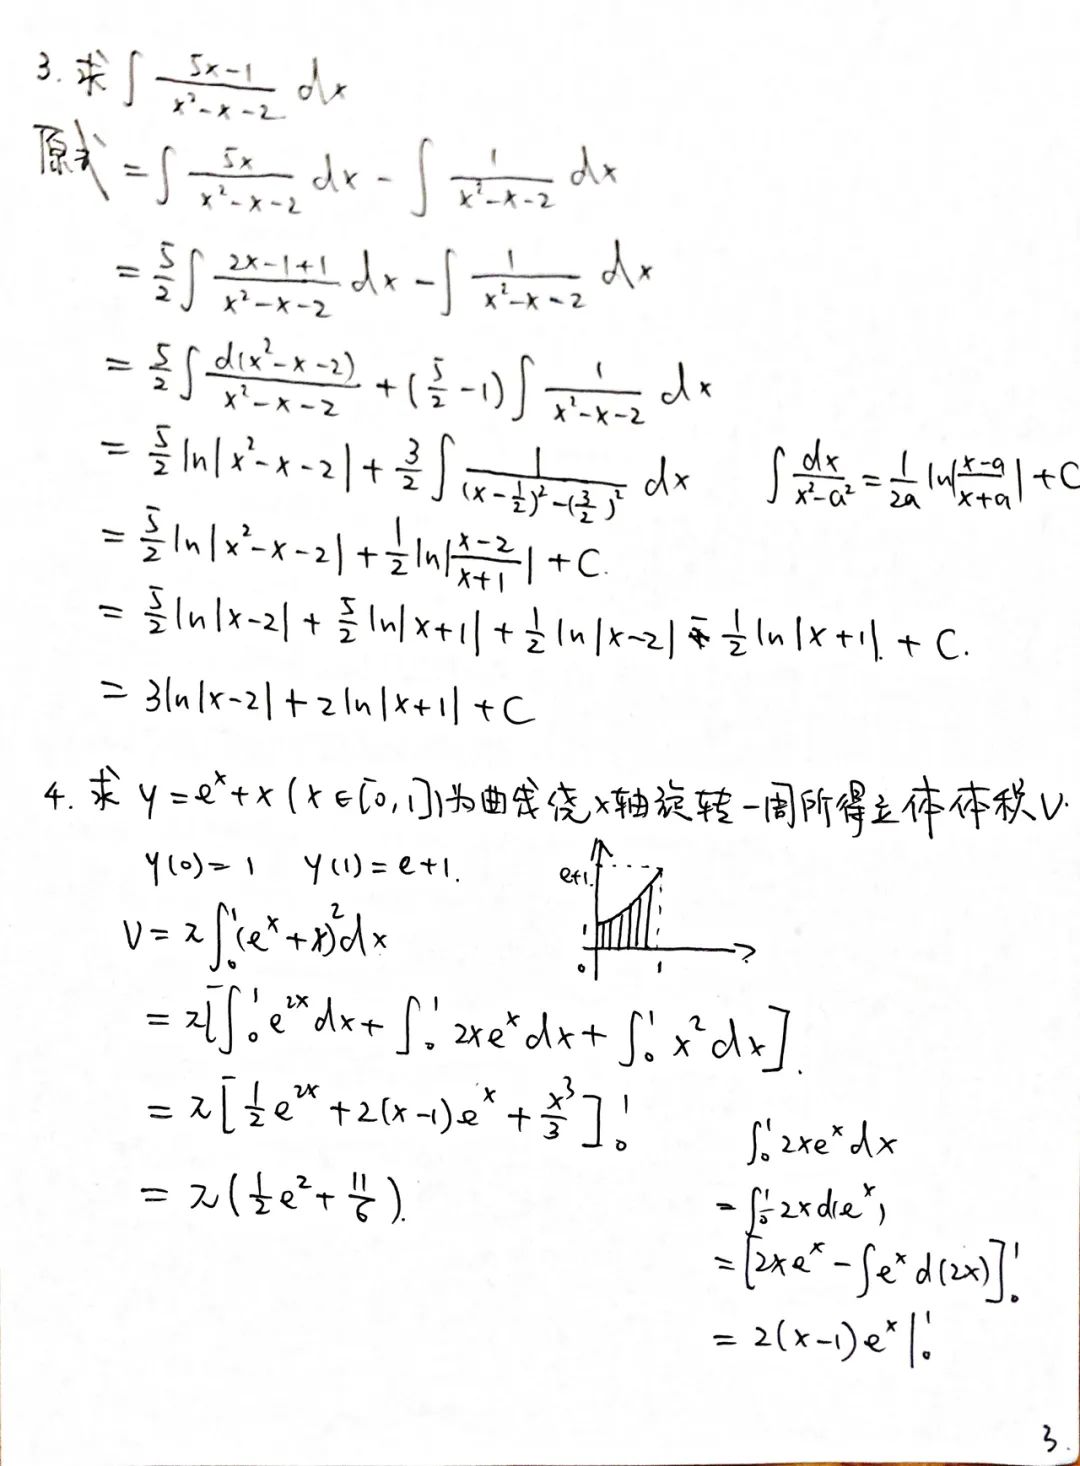 3. 求∫ (5x-1)/(x²-x-2) dx
原式 = ∫ 5x/(x²-x-2) dx - ∫ 1/(x²-x-2) dx
= 5/2 ∫ (2x-1+1)/(x²-x-2) dx - ∫ 1/(x²-x-2) dx
= 5/2 ∫ d(x²-x-2)/(x²-x-2) + (5/2 -1) ∫ 1/(x²-x-2) dx
= 5/2 ln|x²-x-2| + 3/2 ∫ 1/((x-1/2)²-(3/2)²) dx    ∫ dx/(x²-a²) = 1/(2a) ln|(x-a)/(x+a)| + C
= 5/2 ln|x²-x-2| + 1/2 ln|(x-2)/(x+1)| + C.
= 5/2 ln|x-2| + 5/2 ln|x+1| + 1/2 ln|x-2| - 1/2 ln|x+1|. + C.
= 3ln|x-2| + 2ln|x+1| + C
4. 求 y=eˣ+x (x∈[0,1])为曲线绕x轴旋转一周所得立体体积V.
y(0)=1  y(1)=e+1.
e+1
1
0
1
V = π∫₀¹(eˣ+x)²dx
= π[∫₀¹e²ˣdx + ∫₀¹ 2xeˣdx + ∫₀¹ x²dx].
= π[1/2 e²ˣ + 2(x-1)eˣ + x³/3]₀¹
= π(1/2 e² + 11/6).
∫₀¹ 2xeˣdx
= ∫₀¹ 2xd(eˣ)
= [2xeˣ - ∫eˣd(2x)]₀¹
= 2(x-1)eˣ|₀¹
3.